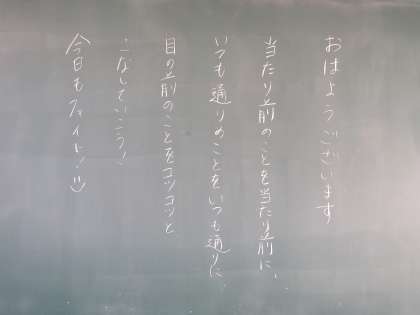 おはようございます
当たり前のことを当たり前に、
いつも通りのことをいつも通りに、
目の前のことをコツコツと
こなしていこう!
今日もファイト!